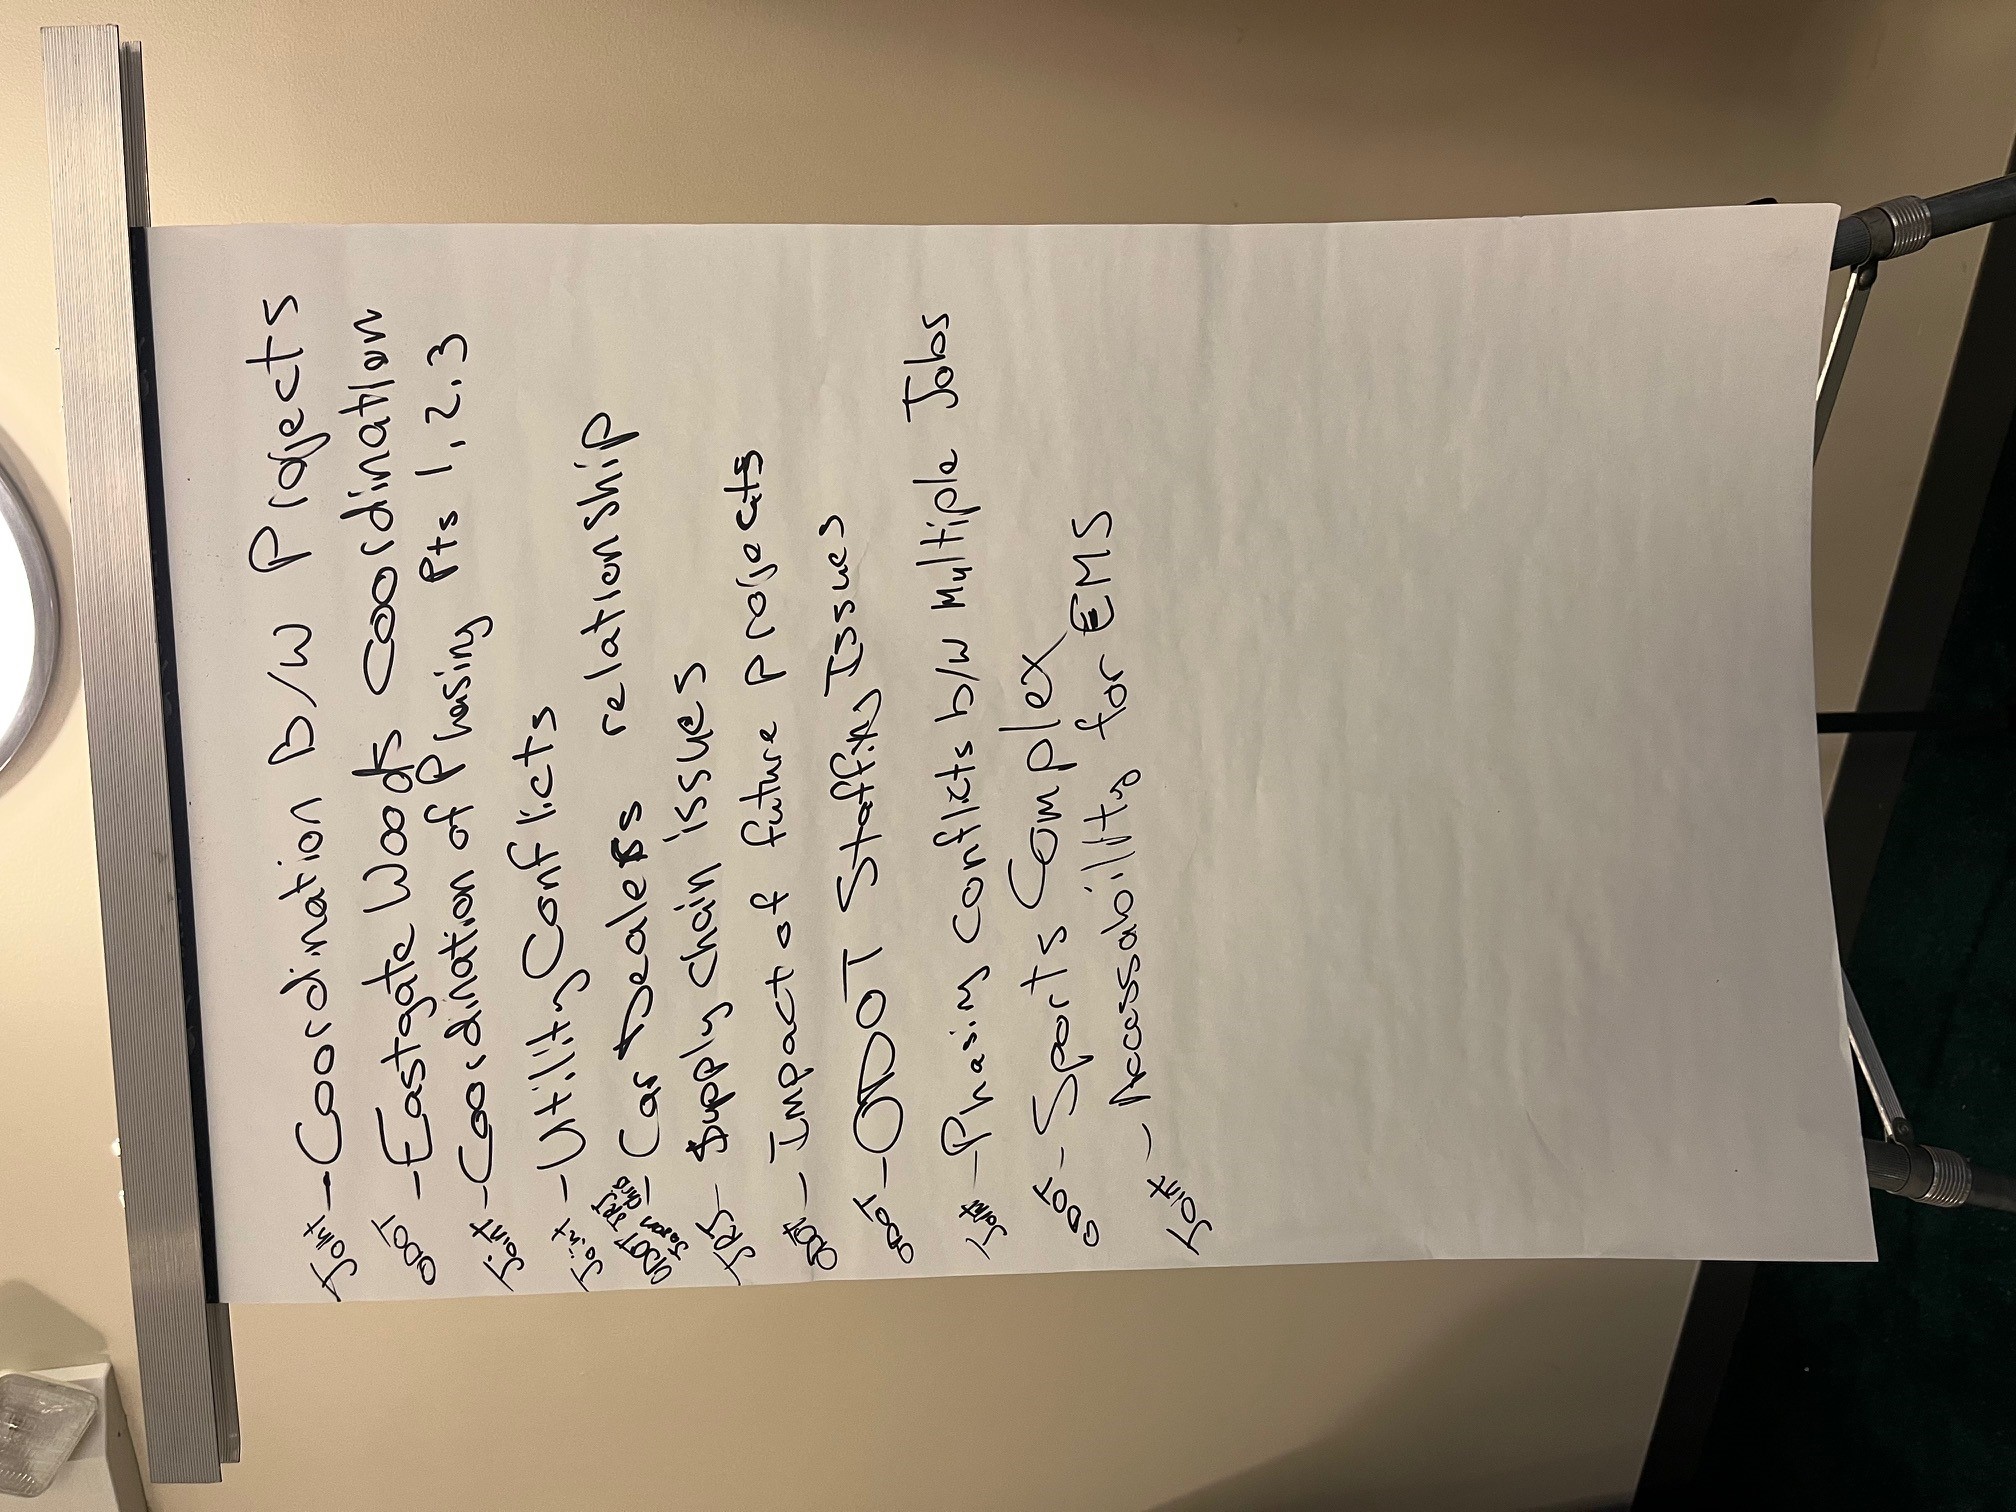 Joint - Coordination B/W Projects
ODOT - Eastgate Woods Coordination
Joint - Coordination of Phasing Pts 1, 2, 3
Joint - Utility Conflicts
ODOT JRJ
Jason Chris - Car Dealers relationship
JRJ - Supply chain issues
ODOT - Impact of future projects
ODOT - ODOT Staffing Issues
Joint - Phasing conflicts b/w Multiple Jobs
ODOT - Sports Complex
Joint - Accessability for EMS